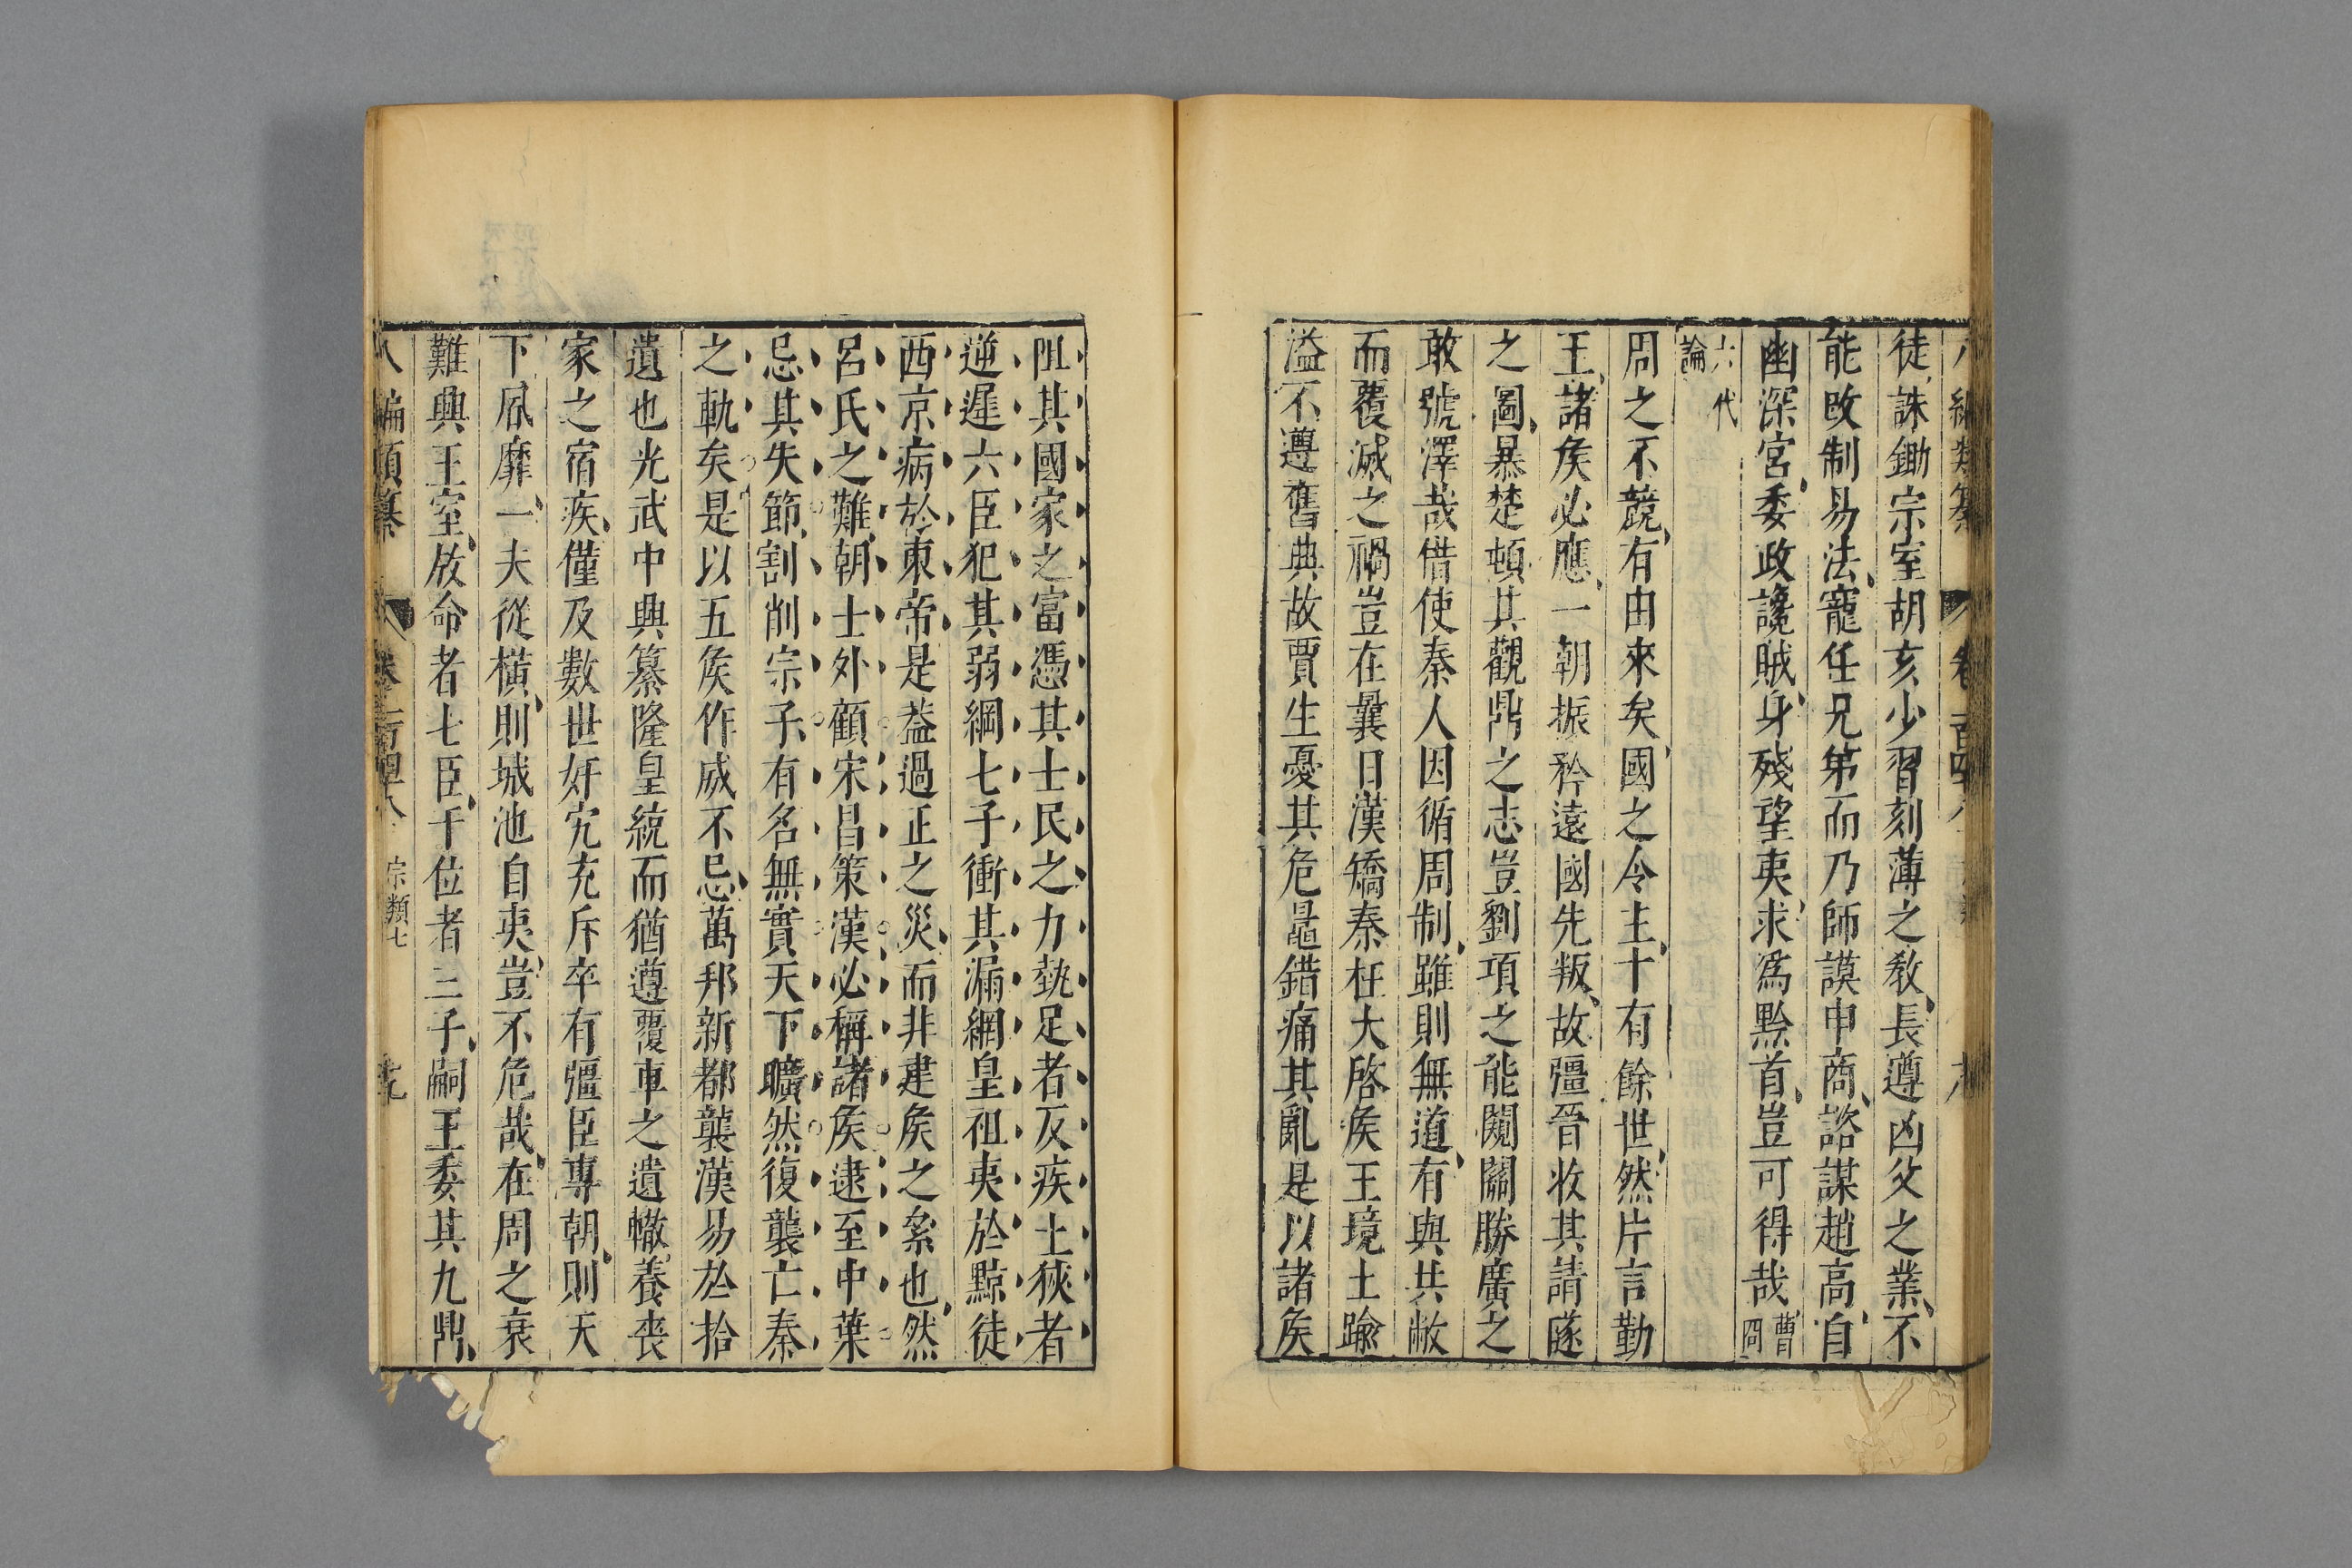 八編類纂 卷一百四十八
徒誅鋤宗室胡亥少習刻薄之教長遵凶父之業不
能改制易法寵任兄弟而乃師謨申商諮謀趙高自
幽深宮委政讒賊身殘望夷求爲黔首豈可得哉曹冏
六代論
周之不競有由來矣國之令主十有餘世然片言勤
王諸矦必應一朝振矜遠國先叛故彊晉收其請隧
之圖暴楚頓其觀鼎之志豈劉項之能闚關勝廣之
敢號澤哉借使秦人因循周制雖則無道有與共敝
而覆滅之禍豈在曩日漢矯秦枉大啓矦王境土踰
溢不遵舊典故賈生憂其危鼂錯痛其亂是以諸矦
阻其國家之富憑其士民之力埶足者反疾土狹者
逆遲六臣犯其弱綱七子衝其漏網皇祖夷於黥徒
西京病於東帝是葢過正之災而非建矦之絫也然
呂氏之難朝士外顧宋昌策漢必稱諸矦逮至中葉
忌其失節割削宗子有名無實天下曠然復襲亡秦
之軌矣是以五矦作威不忌萬邦新都襲漢易於拾
遺也光武中興纂隆皇統而猶遵覆車之遺轍養喪
家之宿疾僅及數世奸宄充斥卒有彊臣專朝則天
下風靡一夫從橫則城池自夷豈不危哉在周之衰
難興王室放命者七臣干位者三子嗣王委其九鼎
八編類纂 卷一百四十八 宗類七 十九